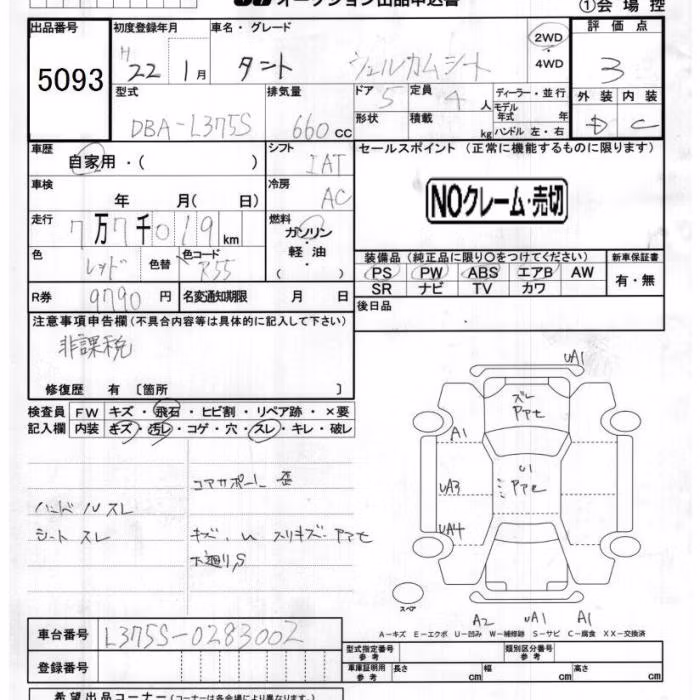 オークション出品申込書
①会場控
出品番号 初度登録年月 車名・グレード 評価点
5093 H 22 1月 タント ウェルカムシート 2WD・4WD 3
型式 排気量 ドア 定員 ディーラー・並行 外装 内装
DBA-L375S 660cc 5 4人 モデル年式 年 D C
形状 積載 kg ハンドル 左・右
車歴 シフト セールスポイント (正常に機能するものに限ります)
自家用・( ) IAT
車検 冷房
年 月( 日) AC NOクレーム・売切
走行 燃料
7万7千019km ガソリン・軽油・( )
色 色コード 装備品 (純正品に限り○をつけてください) 新車保証書
レッド 色替 R55 PS PW ABS エアB AW 有・無
R券 9790円 名変通知期限 月 日 SR ナビ TV カワ
注意事項申告欄(不具合内容等は具体的に記入して下さい) 後日品
非課税
修復歴 有 〔箇所 〕
検査員 FW キズ・飛石・ヒビ割・リペア跡・×要
記入欄 内装 キズ・汚レ・コゲ・穴・スレ・キレ・破レ
UA1
ズレ
アアセ
A1
コアサポート 歪
U1
アアセ
UA3
ハンドルスレ
シート スレ キズ、U スリキズ・アアセ
UA4
下廻りS
スペア
A2 UA1 A1
A-キズ E-エクボ U-凹み W-補修跡 S-サビ C-腐食 XX-交換済
車台番号 L375S-0283002
型式指定番号 参考 類別区分番号 参考
登録番号 車庫証明用 参考 長さ cm 幅 cm 高さ cm
希望出品コーナー (コーナーは各会場により異なります。)